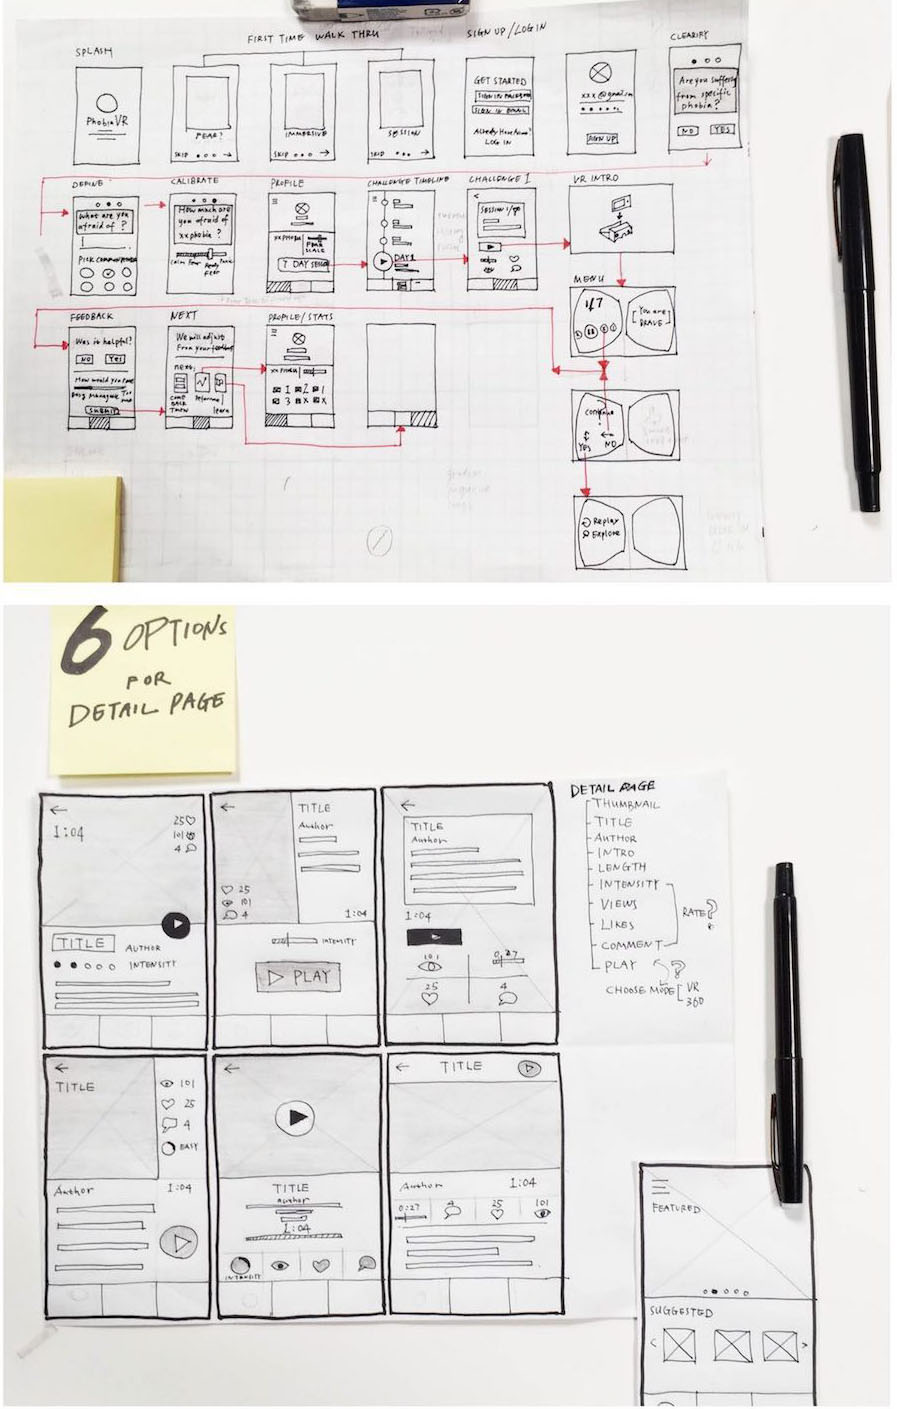 FIRST TIME WALK THRU
SIGN UP/LOG IN
CLEARIFY
SPLASH
PhobiaVR
FEAR?
SKIP
IMMERSIVE
SKIP
SESSION
SKIP
GET STARTED
SIGN IN EMAIL
LOG IN
SIGN UP
Are you suffering
from specific
phobia?
NO YES
DEFINE
What are you
afraid of?
CALIBRATE
How much are
you afraid of
xxphobia?
PROFILE
XXPHOBIA
FEAR
SCALE
7 DAY
CHALLENGE TIMELINE
DAY1
CHALLENGE 1
VR INTRO
MENU
1/7
[You are
BRAVE]
FEEDBACK
Was it helpful?
NO YES
SUBMIT
NEXT
We will adjust
From your feedback
NEXT:
COME
BACK
learn
PROFILE/STATS
1 2 1
3 X X
Continue
?
YES
NO
Replay
Explore
6 OPTIONS
FOR
DETAIL PAGE
1:04
25
101
4
TITLE
AUTHOR
INTENSITY
TITLE
Author
25
101
4
1:04
INTENSITY
PLAY
TITLE
Author
1:04
101
0.27
25
4
DETAIL PAGE
THUMBNAIL
TITLE
AUTHOR
INTRO
LENGTH
INTENSITY
VIEWS
LIKES
COMMENT
RATE?
PLAY
?
CHOOSE MODE
VR
360
TITLE
101
25
4
EASY
Author
1:04
TITLE
Author
1:04
INTENSITY
TITLE
Author
1:04
0:27
4
25
101
FEATURED
SUGGESTED